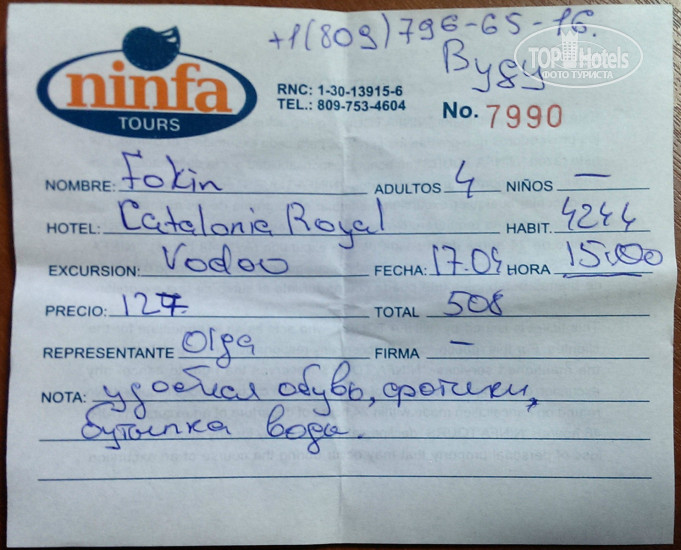 +1(809)796-65-16.
Вуду
TOPHotels
ФОТО ТУРИСТА
ninfa
TOURS
RNC: 1-30-13915-6
TEL.: 809-753-4604
No. 7990
NOMBRE: Fokin ADULTOS 4 NIÑOS —
HOTEL: Catalonia Royal HABIT. 4244
EXCURSION: Vodoo FECHA: 17.04 HORA 15:00
PRECIO: 127. TOTAL 508
REPRESENTANTE Olga FIRMA —
NOTA: удобная обувь, фотики,
бутылка воды.